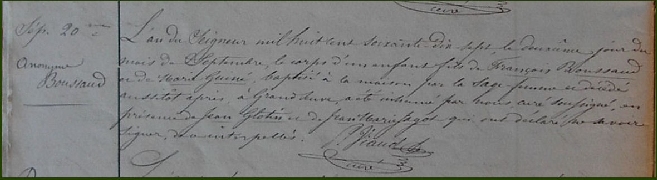 curé
Sép. 20me
Anonyme
Boussaud
L'an du Seigneur mil huit cent soixante-dix sept le deuxième jour du
mois de Septembre, le corps d'un enfant fils de François Boussaud
et de Marie baptisé à la maison par la sage femme et décédé
aussitôt après, à a été inhumé par nous curé soussigné, en
présence de Jean et de Jean qui ont déclaré ne savoir
signer, de ce interpellés.
Viaud
curé